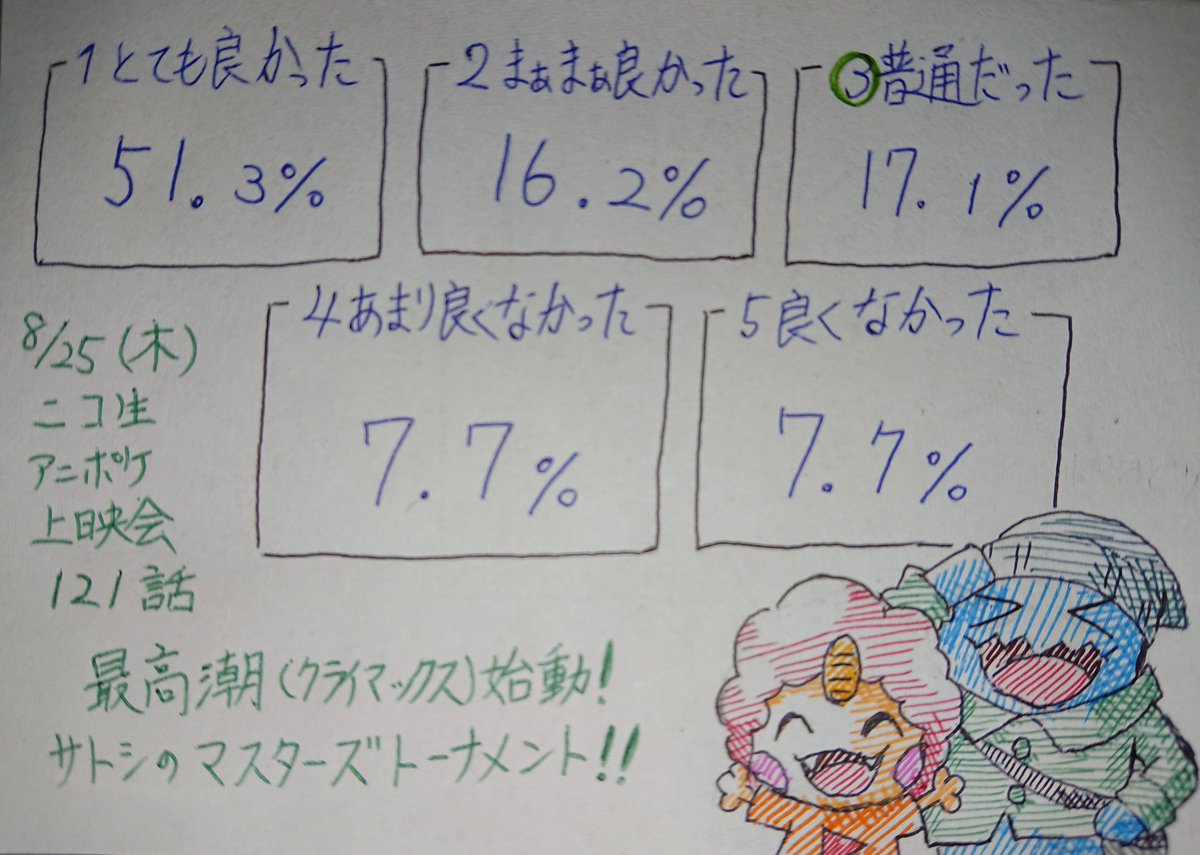 1とても良かった
51.3%
2まぁまぁ良かった
16.2%
3普通だった
17.1%
4あまり良くなかった
7.7%
5良くなかった
7.7%
8/25(木)
ニコ生
アニポケ
上映会
121話
最高潮(クライマックス)始動!
サトシのマスターズトーナメント!!